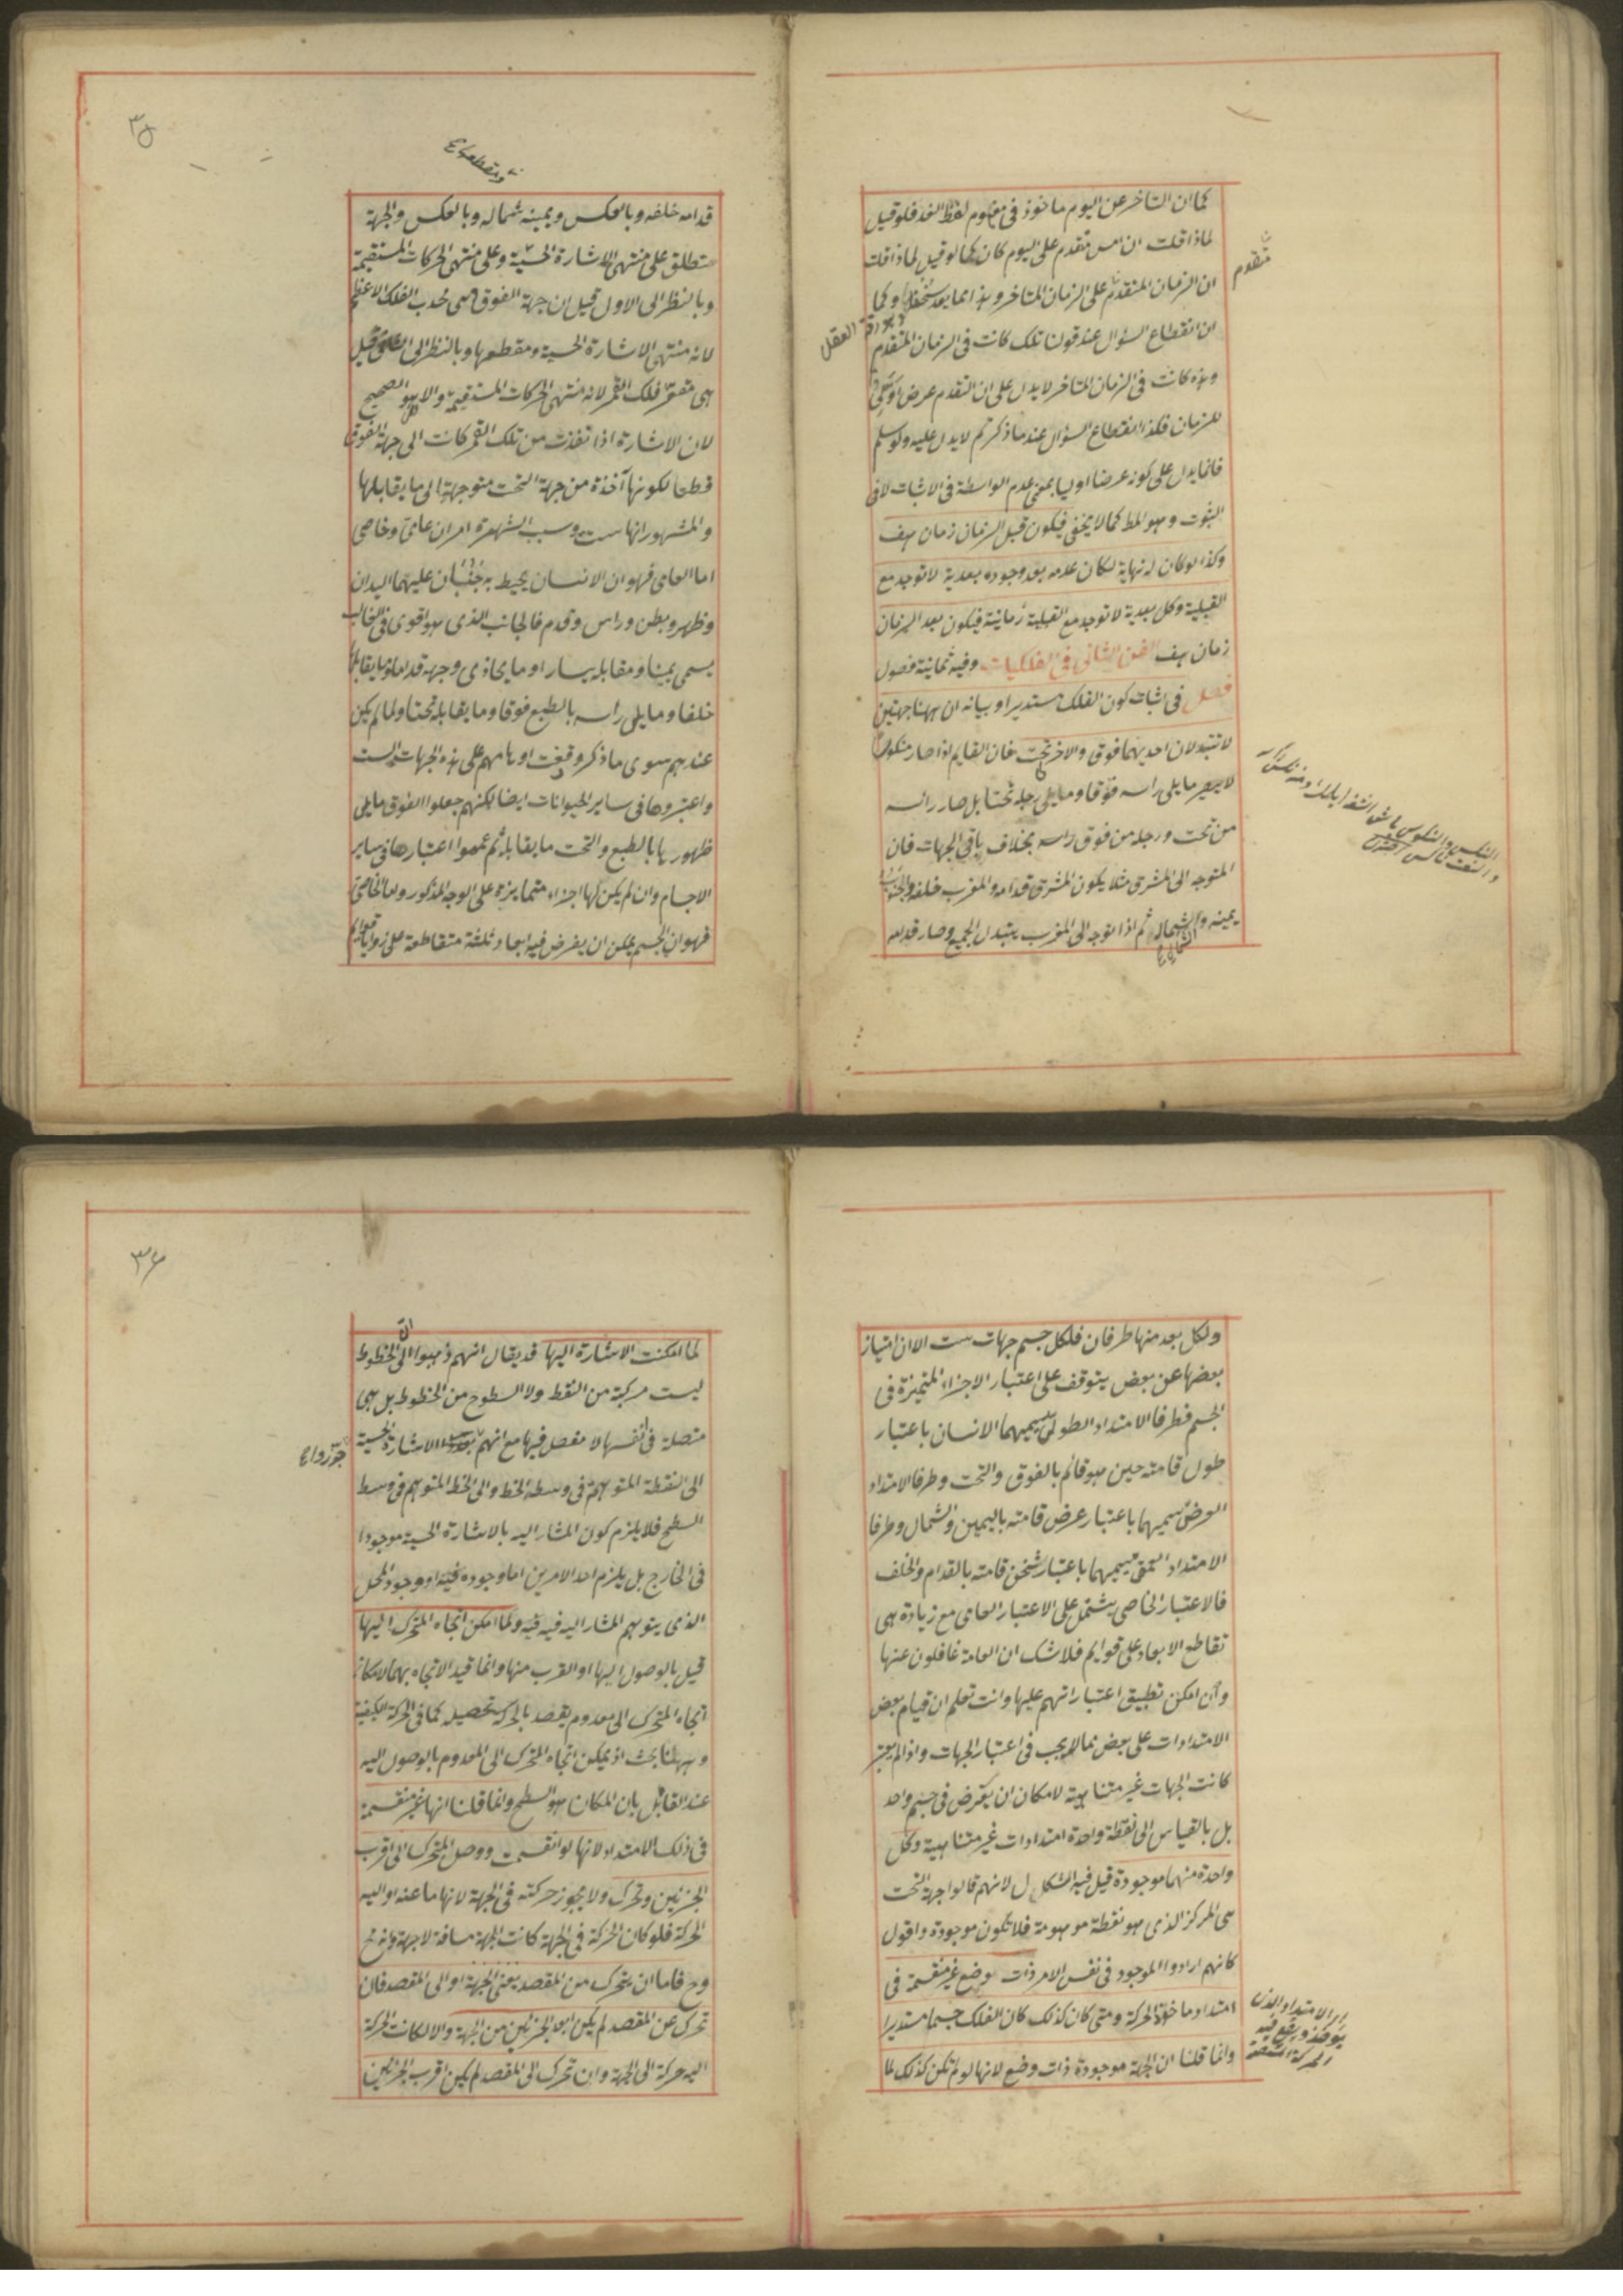 كما ان التاخر عن اليوم ماخوذ فى مفهوم لفظ الغد فلو قيل
لماذا قلت ان امس متقدم على اليوم كان كما لو قيل لماذا قلت
ان الزمان المتقدم على الزمان المتاخر وهذا مما يعد وكما
ان انقطاع السؤال عند قولنا تلك كانت فى الزمان المتقدم
وهذه كانت فى الزمان المتاخر لا يدل على ان التقدم عرض اولى
للزمان فكذا انقطاع السؤال عند ما ذكرتم لا يدل عليه ولو سلم
فانما يدل على كونه عرضا اوليا بمعنى عدم الواسطة فى الاثبات لا فى
الثبوت وهو المط كما لا يخفى فيكون قبل الزمان زمان هف
وكذا لو كان له نهاية لكان عدمه بعد وجوده بعدية لا توجد مع
القبلية وكل بعدية لا توجد مع القبلية زمانية فيكون بعد الزمان
زمان هف الفن الثانى فى الفلكيات وفيه ثمانية فصول
فصل فى اثبات كون الفلك مستديرا وبيانه ان ههنا جهتين
لا تتبدلان احديهما فوق والاخر تحت فان القايم اذا صار منكوسا
لا يصير ما يلى راسه فوقا وما يلى رجله تحتا بل صار رائسه
من تحت ورجله من فوق راسه بخلاف باقى الجهات فان
المتوجه الى المشرق مثلا يكون المشرق قدامه والمغرب خلفه والجنوب
يمينه والشمال ثم اذا توجه الى المغرب يتبدل الجميع وصار قدامه
متقدم
العقل
٣٥
قدامه خلفه وبالعكس ويمينه شماله وبالعكس والجهة
تطلق على منتهى الاشارة الحسية وعلى منتهى الحركات المستقيمة
وبالنظر الى الاول قيل ان جهة الفوق هى محدب الفلك الاعظم
لانه منتهى الاشارة الحسية ومقطعها وبالنظر الى الثانى قيل
هى مقعر فلك القمر لانه منتهى الحركات المستقيمة والاول هو الصحيح
لان الاشارة اذا نفذت من تلك القمر كانت الى جهة الفوق
قطعا لكونها آخذة من جهة التحت متوجهة الى ما يقابلها
والمشهور انها ست وسبب الشهرة امران عامى وخاصى
اما العامى فهو ان الانسان يحيط به جنبان عليهما اليدان
وظهر وبطن وراس وقدم فالجانب الذى هو اقوى فى الغالب
يسمى يمينا ومقابله يسارا وما يحاذى وجهه قداما وما يقابله
خلفا وما يلى راسه بالطبع فوقا وما يقابله تحتا ولما لم يكن
عندهم سوى ما ذكر وقعت اوهامهم على هذه الجهات الست
واعتبروها فى ساير الحيوانات ايضا لكنهم جعلوا الفوق ما يلى
ظهورها بالطبع والتحت ما يقابله ثم عمموا اعتبارها فى ساير
الاجسام وان لم يكن لها اجزاء متمايزة على الوجه المذكور واما الخاصى
فهو ان الجسم يمكن ان يفرض فيه ابعاد ثلثة متقاطعة على زوايا قوايم
ولكل بعد منها طرفان فلكل جسم جهات ست الا ان امتياز
بعضها عن بعض يتوقف على اعتبار الاجزاء المتميزة فى
الجسم فطرفا الامتداد الطولى يسميهما الانسان باعتبار
طول قامته حين هو قائم بالفوق والتحت وطرفا الامتداد
العرضى يسميهما باعتبار عرض قامته باليمين والشمال وطرفا
الامتداد العمقى يسميهما باعتبار ثخن قامته بالقدام والخلف
فالاعتبار الخاصى يشتمل على الاعتبار العامى مع زيادة هى
تقاطع الابعاد على قوايم فلا شك ان العامة غافلون عنها
وان امكن تطبيق اعتباراتهم عليها وانت تعلم ان قيام بعض
الامتدادات على بعض مما لا يجب فى اعتبار الجهات واذا لم يعتبر
كانت الجهات غير متناهية لامكان ان يفرض فى جسم واحد
بل بالقياس الى نقطة واحدة امتدادات غير متناهية وكل
واحدة منهما موجودة قيل فيه اشكال لانهم قالوا جهة التحت
هى المركز الذى هو نقطة موهومة فلا تكون موجودة واقول
كانهم ارادوا الموجود فى نفس الامر ذات وضع غير منقسمة فى
امتداد ماخذ الحركة ومتى كان كذلك كان الفلك جسما مستديرا
وانما قلنا ان الجهة موجودة ذات وضع لانها لو لم تكن كذلك لما
٣٦
لما امكنت الاشارة اليها قد يقال انهم ذهبوا الى ان الخطوط
ليست مركبة من النقط ولا السطوح من الخطوط بل هى
متصلة فى انفسها لا مفصل فيها مع انهم جوزوا الاشارة الحسية
الى النقطة المتوهمة فى وسط الخط والى الخط المتوهم فى وسط
السطح فلا يلزم كون المشار اليه بالاشارة الحسية موجودا
فى الخارج بل يلزم احد الامرين اما وجوده فيه او وجود المحل
الذى يتوهم المشار اليه فيه ولما امكن اتجاه المتحرك اليها
قيل بالوصول اليها او القرب منها وانما قيد الاتجاه بهما لامكان
اتجاه المتحرك الى معدوم يقصد بالحركة تحصيله كما فى الحركة الكيفية
وههنا بحث اذ يمكن اتجاه المتحرك الى المعدوم بالوصول اليه
عند القائل بان المكان هو السطح وانما قلنا انها غير منقسمة
فى ذلك الامتداد لانها لو انقسمت ووصل المتحرك الى اقرب
الجزئين وتحرك ولا يجوز حركته فى الجهة لانها ما عنه او اليه
الحركة فلو كان الحركة فى الجهة كانت الجهة مسافة لا جهة
وح فاما ان يتحرك من المقصد يعنى الجهة او الى المقصد فان
تحرك عن المقصد لم يكن ابعد الجزئين من الجهة والا لكانت الحركة
اليه حركة الى الجهة وان تحرك الى المقصد لم يكن اقرب الجزئين